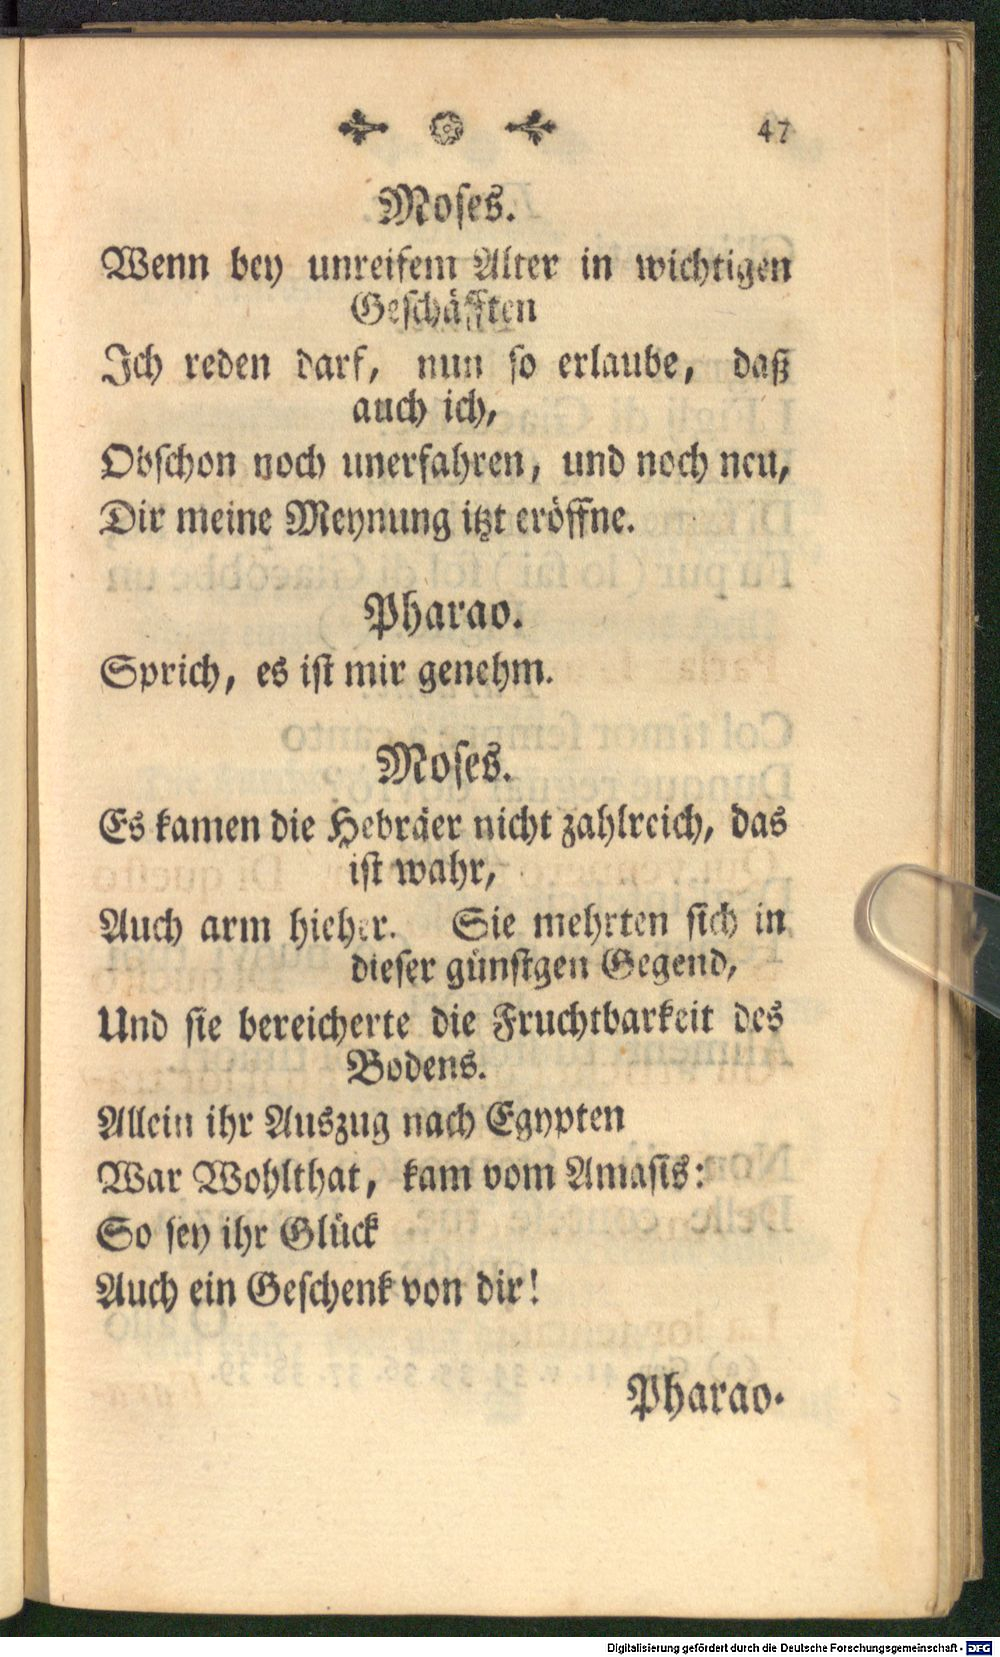 47
Moses.
Wenn bey unreifem Alter in wichtigen
Geschäfften
Ich reden darf, nun so erlaube, daß
auch ich,
Obschon noch unerfahren, und noch neu,
Dir meine Meynung itzt eröffne.
Pharao.
Sprich, es ist mir genehm.
Moses.
Es kamen die Hebräer nicht zahlreich, das
ist wahr,
Auch arm hieher. Sie mehrten sich in
dieser günstgen Gegend,
Und sie bereicherte die Fruchtbarkeit des
Bodens.
Allein ihr Auszug nach Egypten
War Wohlthat, kam vom Amasis:
So sey ihr Glück
Auch ein Geschenk von dir!
Pharao.
Digitalisierung gefördert durch die Deutsche Forschungsgemeinschaft - DFG